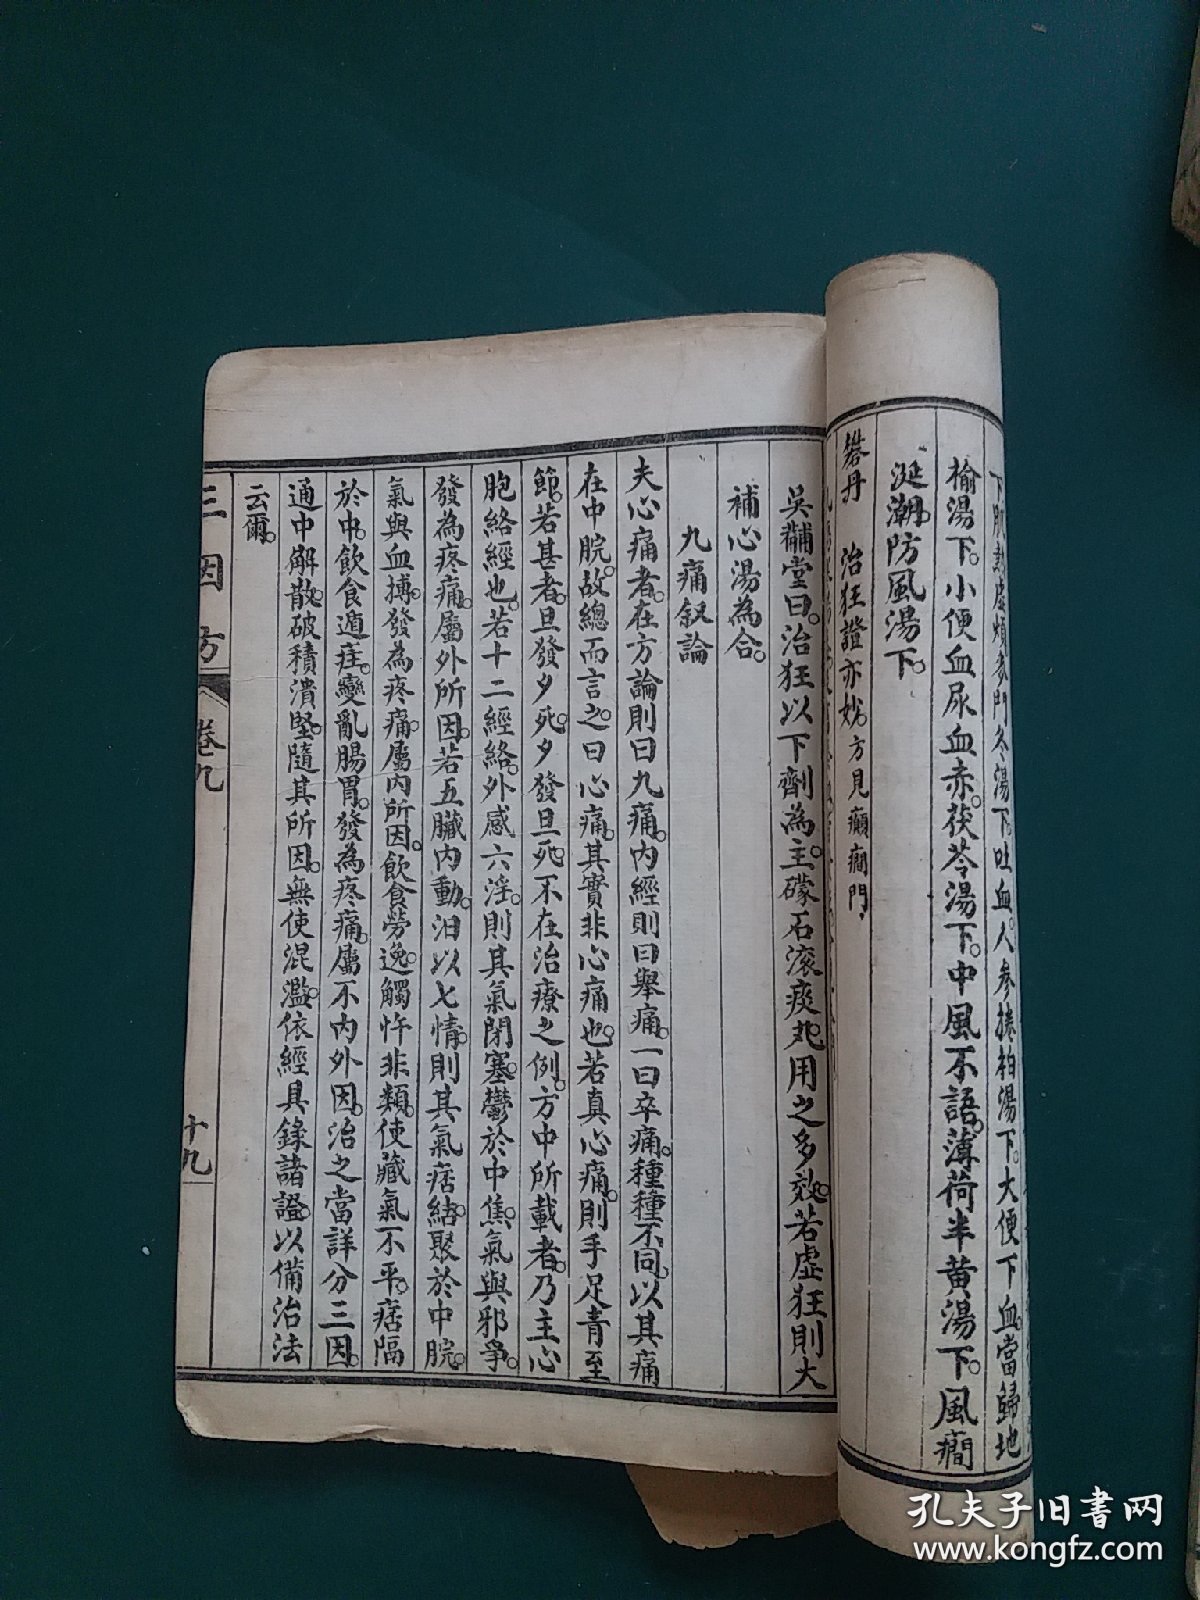 榆湯下。小便血尿血赤。茯苓湯下。中風不語。薄荷半黄湯下。風癇
涎潮。防風湯下。
礬丹　治狂證亦妙。方見癲癇門
吳黼堂曰。治狂以下劑為主。礞石滚痰丸。用之多效。若虛狂則大
補心湯為合。
九痛叙論
夫心痛者。在方論則曰九痛。内經則曰舉痛。一曰卒痛。種種不同。以其痛
在中脘。故總而言之。曰心痛。其實非心痛也。若真心痛。則手足青至
節。若甚者。旦發夕死。夕發旦死。不在治療之例。方中所載者。乃主心
胞絡經也。若十二經絡。外感六淫。則其氣閉塞。鬱於中焦。氣與邪爭。
發為疼痛。屬外所因。若五臟内動。汩以七情。則其氣痞結。聚於中脘。
氣與血搏。發為疼痛。屬内所因。飲食勞逸。觸忤非類。使藏氣不平。痞隔
於中。飲食遁疰。變亂腸胃。發為疼痛。屬不内外因。治之當詳分三因。
通中解散。破積潰堅。隨其所因。無使混濫。依經具錄諸證。以備治法
云爾。
三因方
卷九
十九
孔夫子旧书网
www.kongfz.com